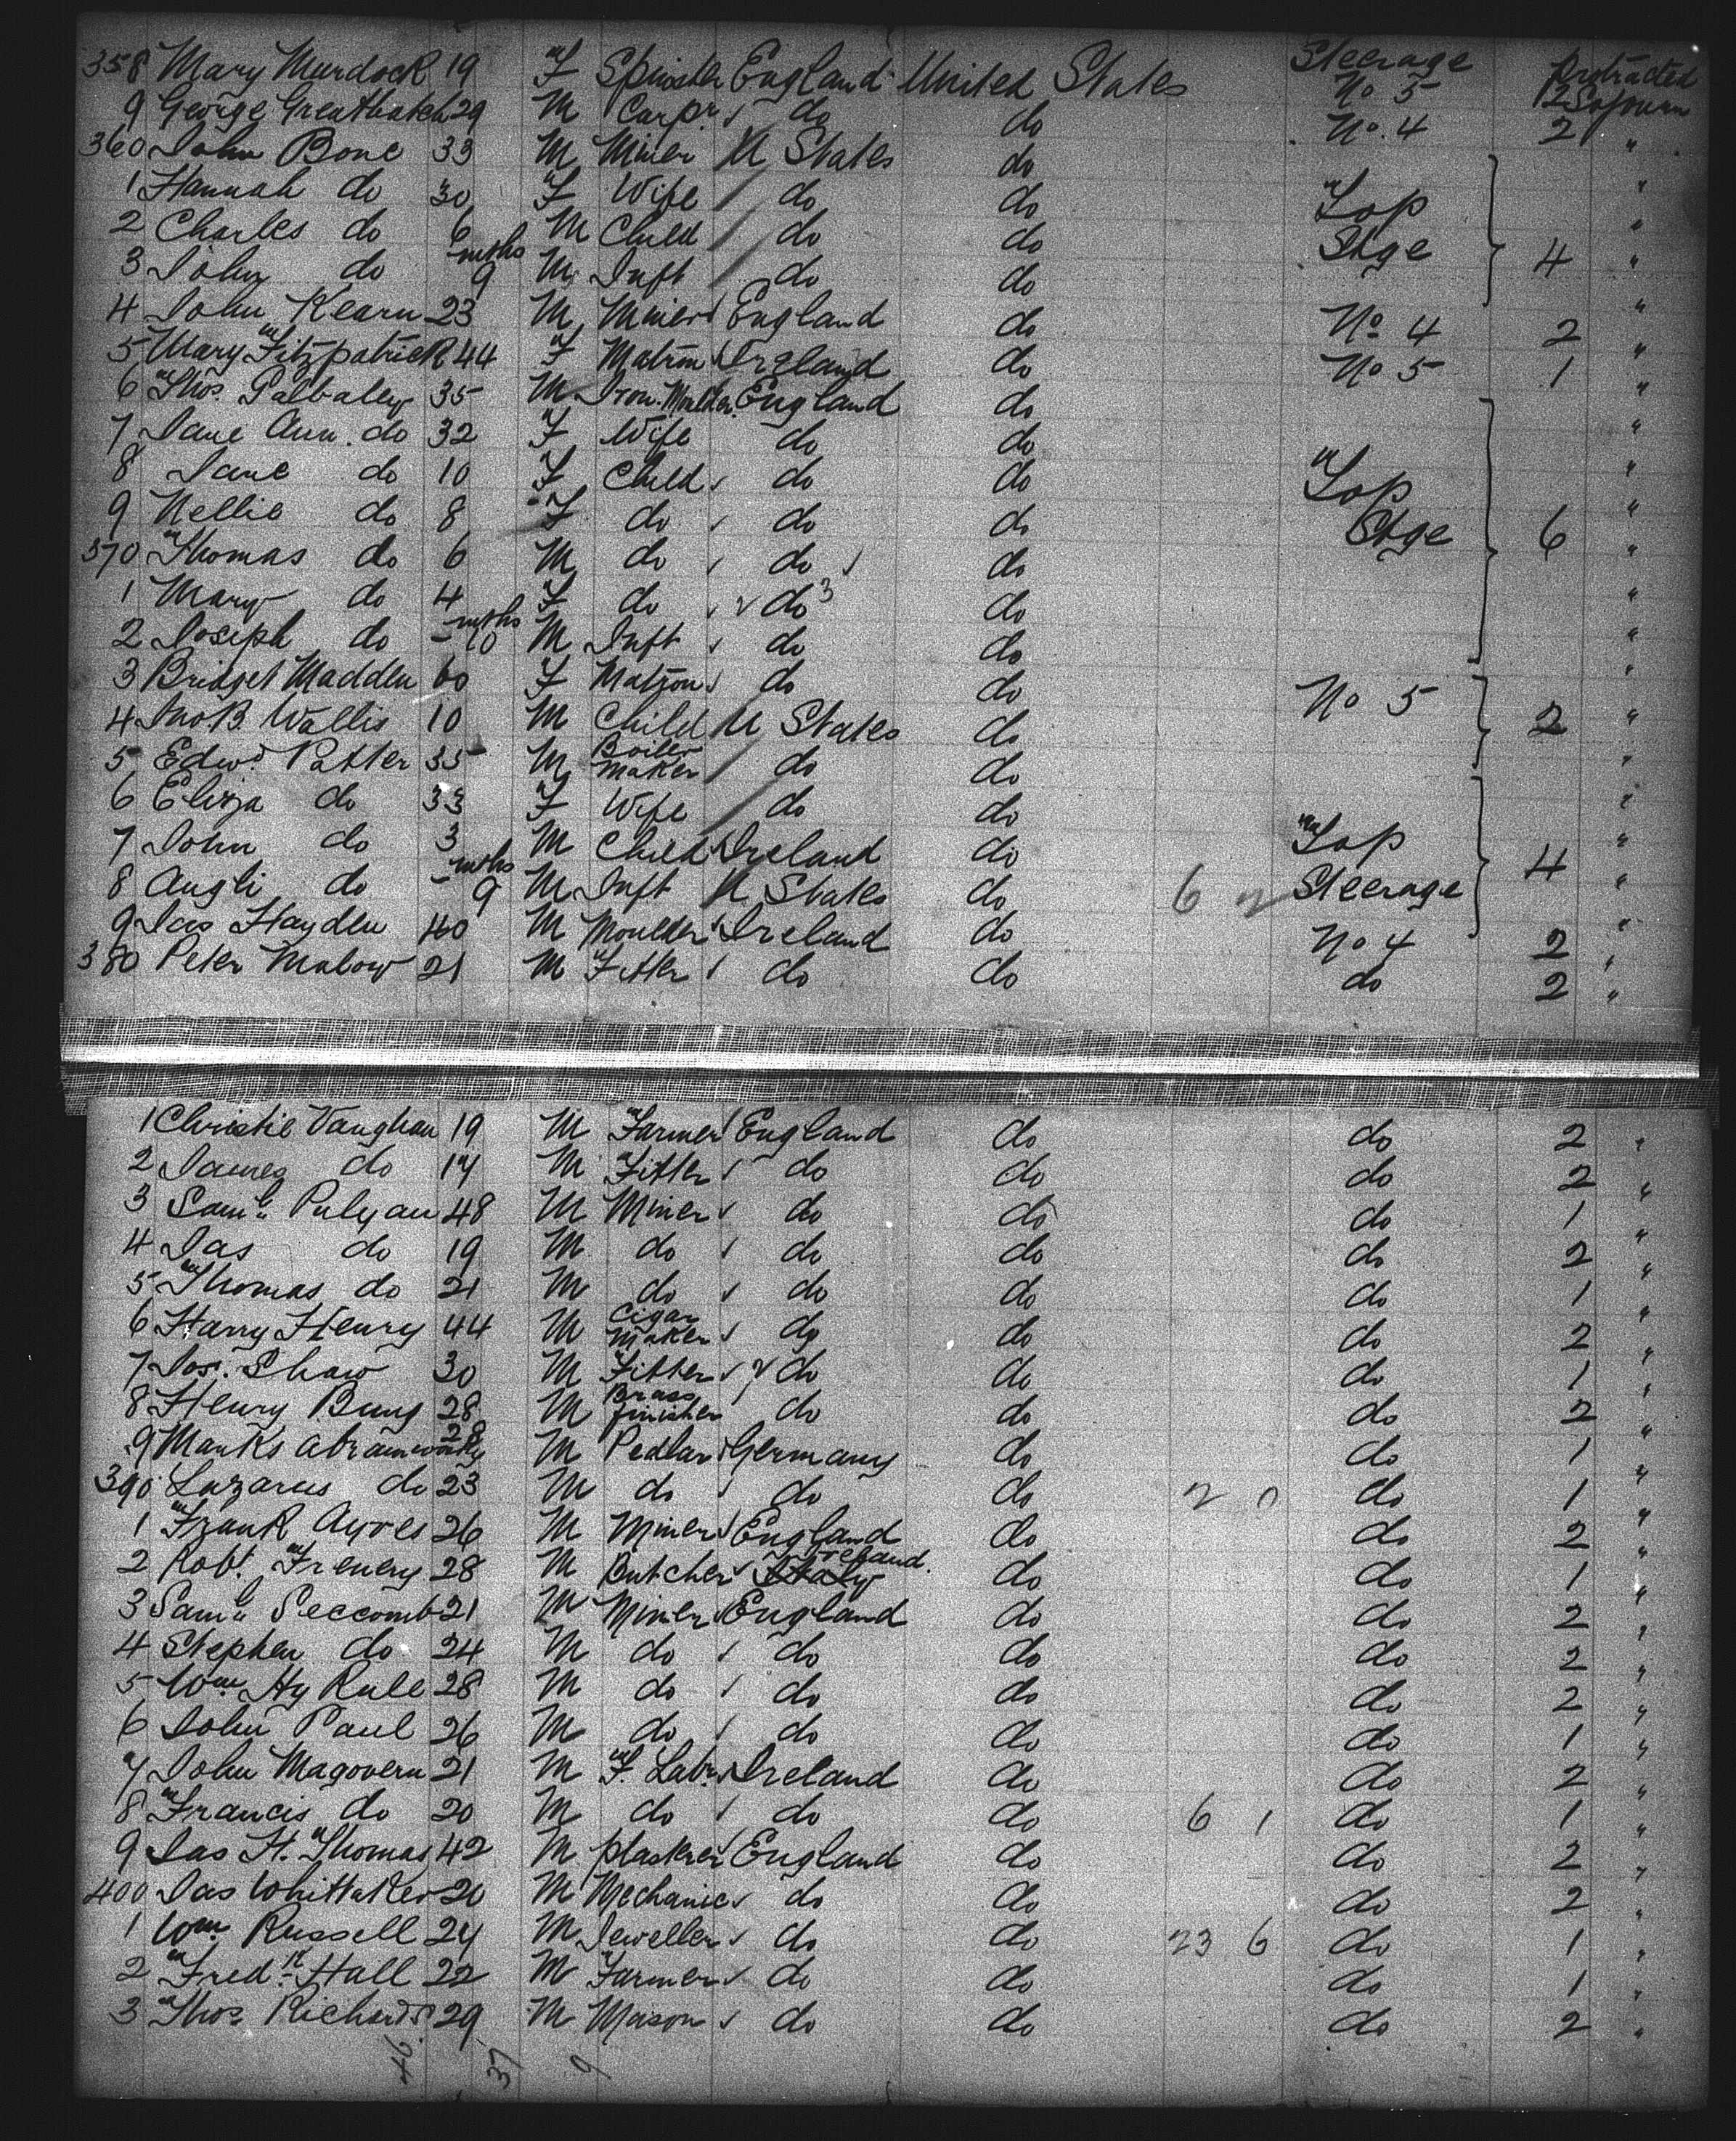 358 Mary Murdock 19 F Spinster England United States Steerage No 5 Protracted
9 George Greatbatch 29 M Carpr do do No. 4 2 Sojourn
360 John Bone 33 M Miner U States do "
1 Hannah do 30 F Wife do do Top "
2 Charles do 6 M Child do do Stge 4 "
3 John do mths 9 M Inft do do "
4 John Kearn 23 M Miner England do No 4 2 "
5 Mary Fitzpatrick 44 F Matron Ireland do No 5 1 "
6 Thos. 35 M Iron Moulder England do "
7 Jane Ann do 32 F Wife do do "
8 Jane do 10 F Child do do Top "
9 Nellie do 8 F do do do Stge 6 "
370 Thomas do 6 M do do do "
1 Mary do 4 F do do do "
2 Joseph do - mths 10 M Inft do do "
3 Bridget Madden 60 F Matron do do No 5 "
4 Jno B. Wallis 10 M Child U States do 2 "
5 Edwd. Patter 35 M Boiler Maker do do "
6 Eliza do 33 F Wife do do "
7 John do 3 M Child Ireland do Top "
8 Angli do - mths 9 M Inft U States do 6 2 Steerage 4 "
9 Jas Hayden 40 M Moulder Ireland do No 4 2 "
380 Peter Malow 21 M Fitter do do do 2 "
1 Christie Vaughan 19 M Farmer England do do 2 "
2 James do 17 M Fitter do do do 2 "
3 Saml. Pulyan 48 M Miner do do do 1 "
4 Jas do 19 M do do do do 2 "
5 Thomas do 21 M do do do do 1 "
6 Harry Henry 44 M Cigar Maker do do do 2 "
7 Jos. Shaw 30 M Fitter do do do 1 "
8 Henry Bung 28 M Brass finisher do do do 2 "
9 Marks 28 M Pedlar Germany do do 1 "
390 Lazarus do 23 M do do do 2 0 do 1 "
1 Frank Ayres 26 M Miner England do do 2 "
2 Robt. Frenery 28 M Butcher Italy Ireland. do do 1 "
3 Saml. Seccomb 21 M Miner England do do 2 "
4 Stephen do 24 M do do do do 2 "
5 Wm. Hy Rule 28 M do do do do 2 "
6 John Paul 26 M do do do do 1 "
7 John Magovern 21 M F. Labr. Ireland do do 2 "
8 Francis do 20 M do do do 6 1 do 1 "
9 Jas H. Thomas 42 M plasterer England do do 2 "
400 Jas Whittaker 20 M Mechanic do do do 2 "
1 Wm. Russell 24 M Jeweller do do 23 6 do 1 "
2 Fredk. Hall 22 M Farmer do do do 1 "
3 Thos. Richards 29 M Mason do do do 2 "
46 37 9